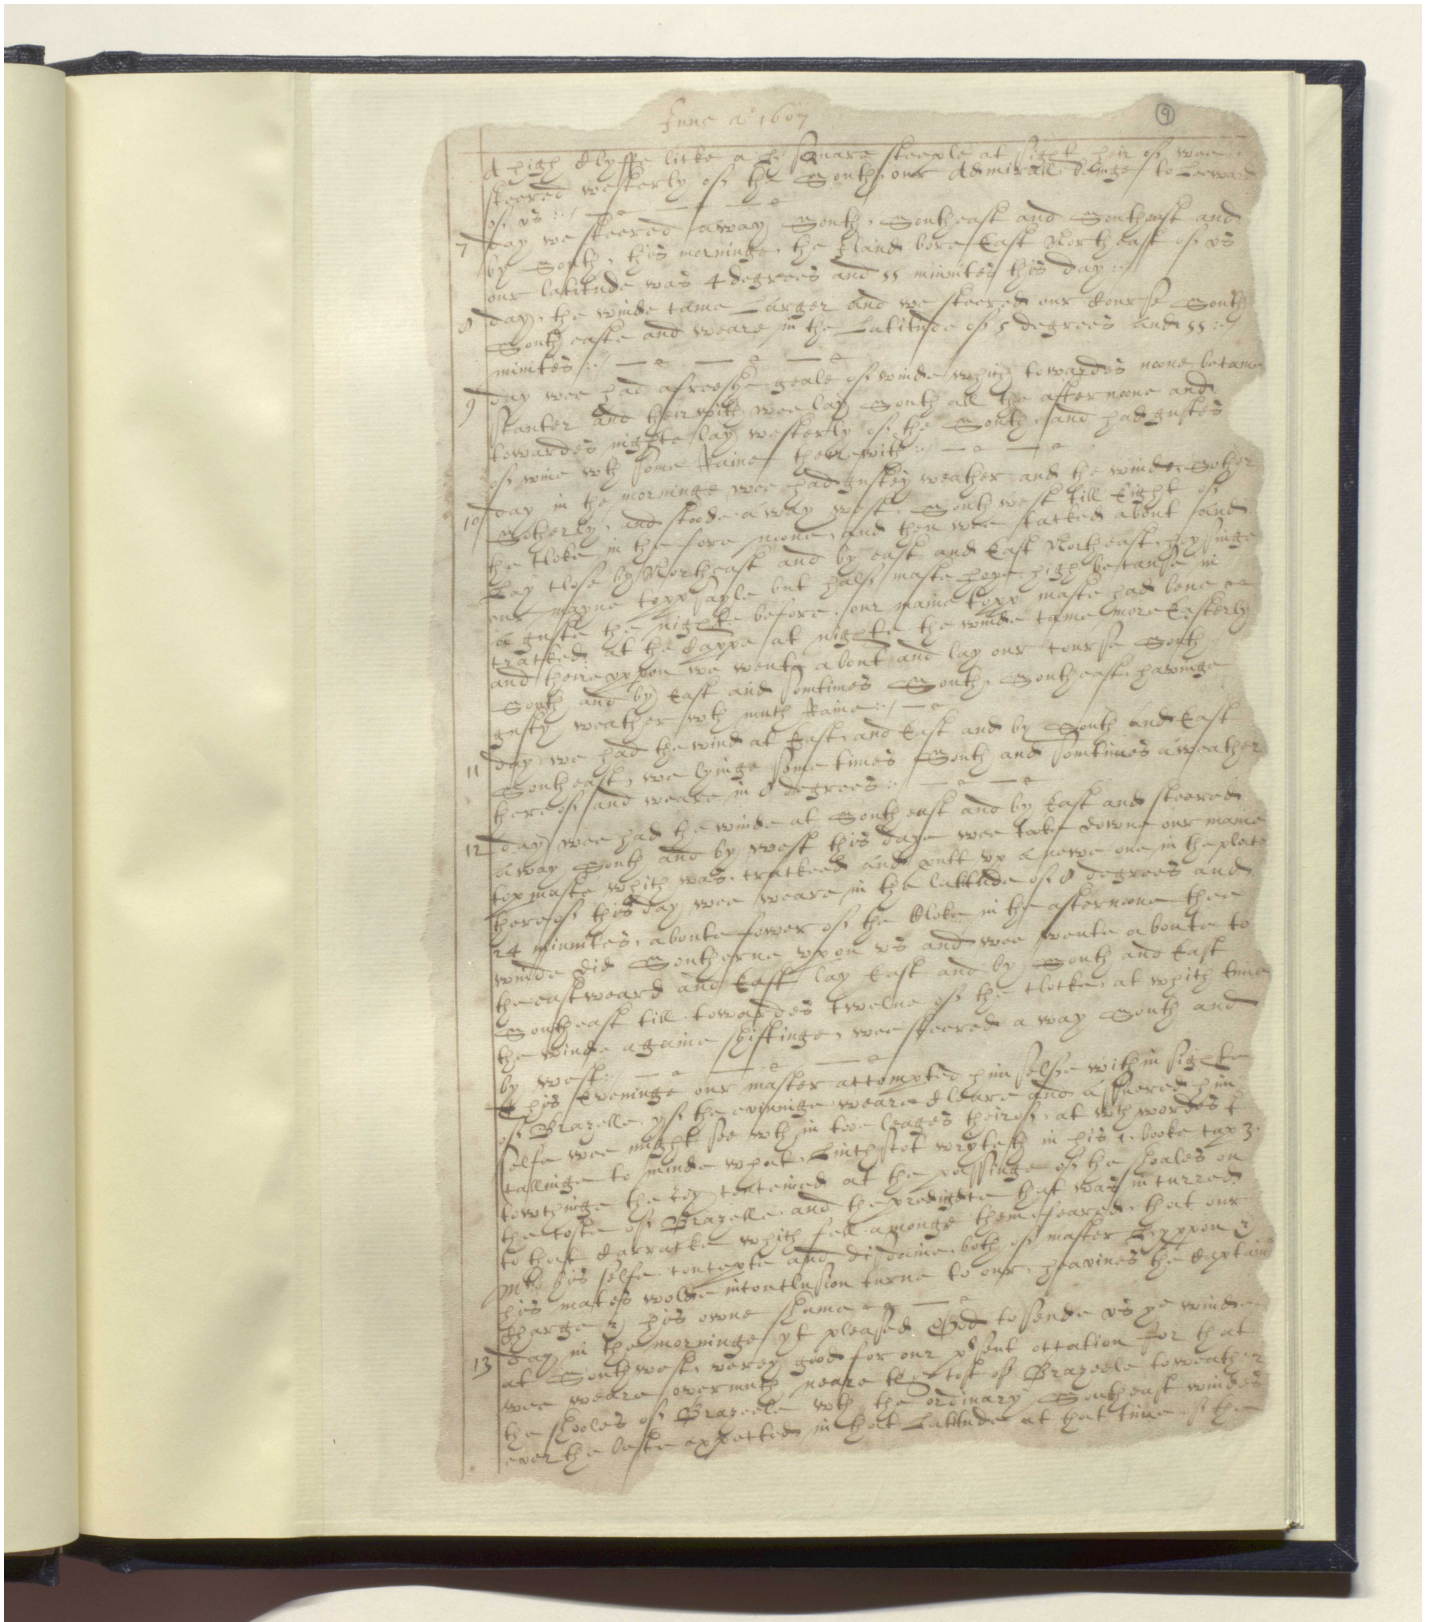 June a° 1607
9
A high Clyffe licke a square steeple at sight heir of wee
steered westerly of the South, our Admirall beinge to Leeward
of us
7 day we steered away South, Southeast and Southeast and
by South, this morninge the Iland bore East Northeast of us
our latitude was 4 degrees and 11 minites this day
8 day, the winde came Larger and we steered our Course South
South easte and weare in the Latitude of 5 degrees and 11
minites
9 day wee had a freeshe geale of winde which towardes noone became
skanter and heirwith wee lay South all the afternoone and
towardes nighte lay westerly of the South, and had gustes
of wine wth some Raine therewith
10 day in the morninge wee had gustey weather and the winde Sother
Sotherly, and stoode away west Southwest till Eight of
the Cloke in the fore noone, and then wee tacked about and
Lay close by Northeast and by east and East Northeast, hoysinge
our mayne topp sayle but half maste hye because in
a guste the nighte before, our maine topp maste had bene
cracked at the Cappe at nighte the winde came more Easterly
and theireuppon we wente about and lay our course South
South and by East and somtimes South, Southeast, havinge
gusty weather wth much Raine
11 day we had the wind at East, and East and by South and East
Southeast, we lyinge some times South and somtimes a weather
thereof and weare in 8 degrees
12 day wee had the winde at Southeast and by East and steered
away South and by west this daye wee take downe our maine
topmaste which was cracked and putt up a newe one in the place
thereof this day wee weare in the latitude of 8 degrees and
24 minnites, aboute fower of the Cloke in the afternoone thee
winde did Southerne upon us and wee wente aboute to
the eastward and East lay East and by South and East
Southeast till towardes twelve of the clocke, at which time
the winde againe shiftinge, wee steered away South and
by west
This Eveninge our master attempted him selfe within sighte
of Brazelle, yf the evininge weare Cleare and assuered him
selfe wee might see wth in two leages theirof, at wch wordes I
callinge to minde what Linschot wryteth in his 1 booke cap 3
towchinge the conceived at the passinge of the shoales on
the coste of Brazelle and the that was incurred
to that Carracke which fell amonge them, feared that our
his selfe contepte and disdaine both of master
his mates wolde in conclusion turne to our heavines the Captain
Charge & his owne shame
13 day in the morninge yt pleased God to sende us ye winde
at Southwest, verey good for our psent occation for that
wee weare overmuch neare the Cost of Brazeele to weather
the shooles of Brazeele wth the ordinary Southeast windes
ever the beste expected in that Lattitude at that time of the